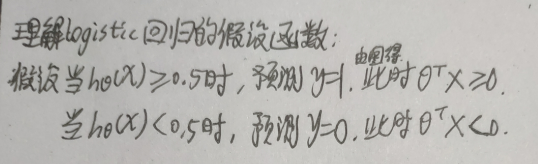 理解logistic回归的假设函数:
假设当hθ(x)≥0.5时,预测y=1.由图得此时θᵀx≥0.
当hθ(x)<0.5时,预测y=0.此时θᵀx<0.